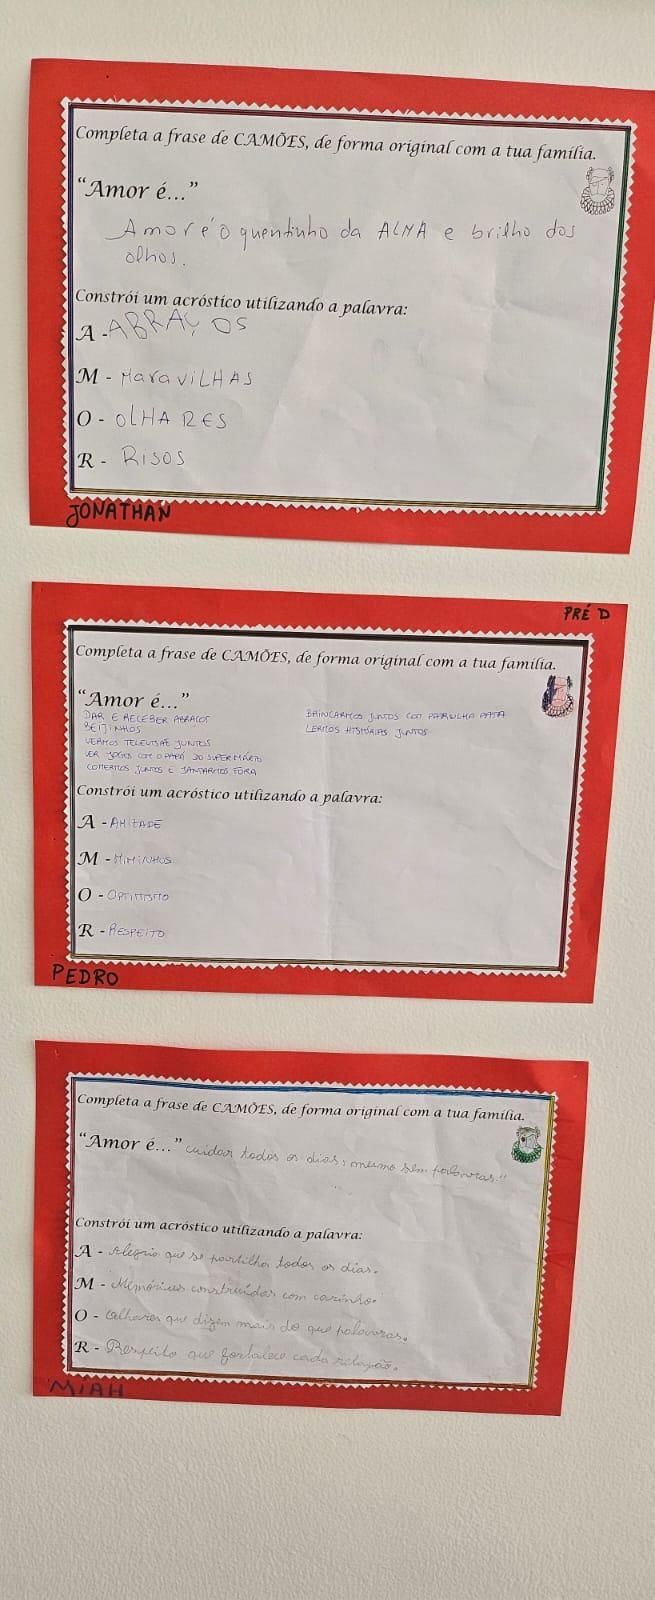 Completa a frase de CAMÕES, de forma original com a tua família.
"Amor é..."
Amor é o quentinho da ALMA e brilho dos
olhos.
Constrói um acróstico utilizando a palavra:
A - ABRAÇOS
M - MaraviLHAS
O - OLHARES
R - RISOS
JONATHAN
PRÉ D
Completa a frase de CAMÕES, de forma original com a tua família.
"Amor é..."
DAR E RECEBER ABRAÇOS
BEIJINHOS
VERMOS TELEVISÃO JUNTOS
VER JOGOS COM O PAPÁ DO SUPER MÁRIO
COMERMOS JUNTOS E JANTARMOS FORA
BRINCARMOS JUNTOS COM PATRULHA PATA
LERMOS HISTÓRIAS JUNTOS
Constrói um acróstico utilizando a palavra:
A - AMIZADE
M - MIMINHOS
O - OPTIMISMO
R - RESPEITO
PEDRO
Completa a frase de CAMÕES, de forma original com a tua família.
"Amor é..." cuidar todos os dias, mesmo sem palavras."
Constrói um acróstico utilizando a palavra:
A - Alegria que se partilha todos os dias.
M - Memórias construídas com carinho.
O - Olhares que dizem mais do que palavras.
R - Respeito que fortalece cada relação.
MIAH